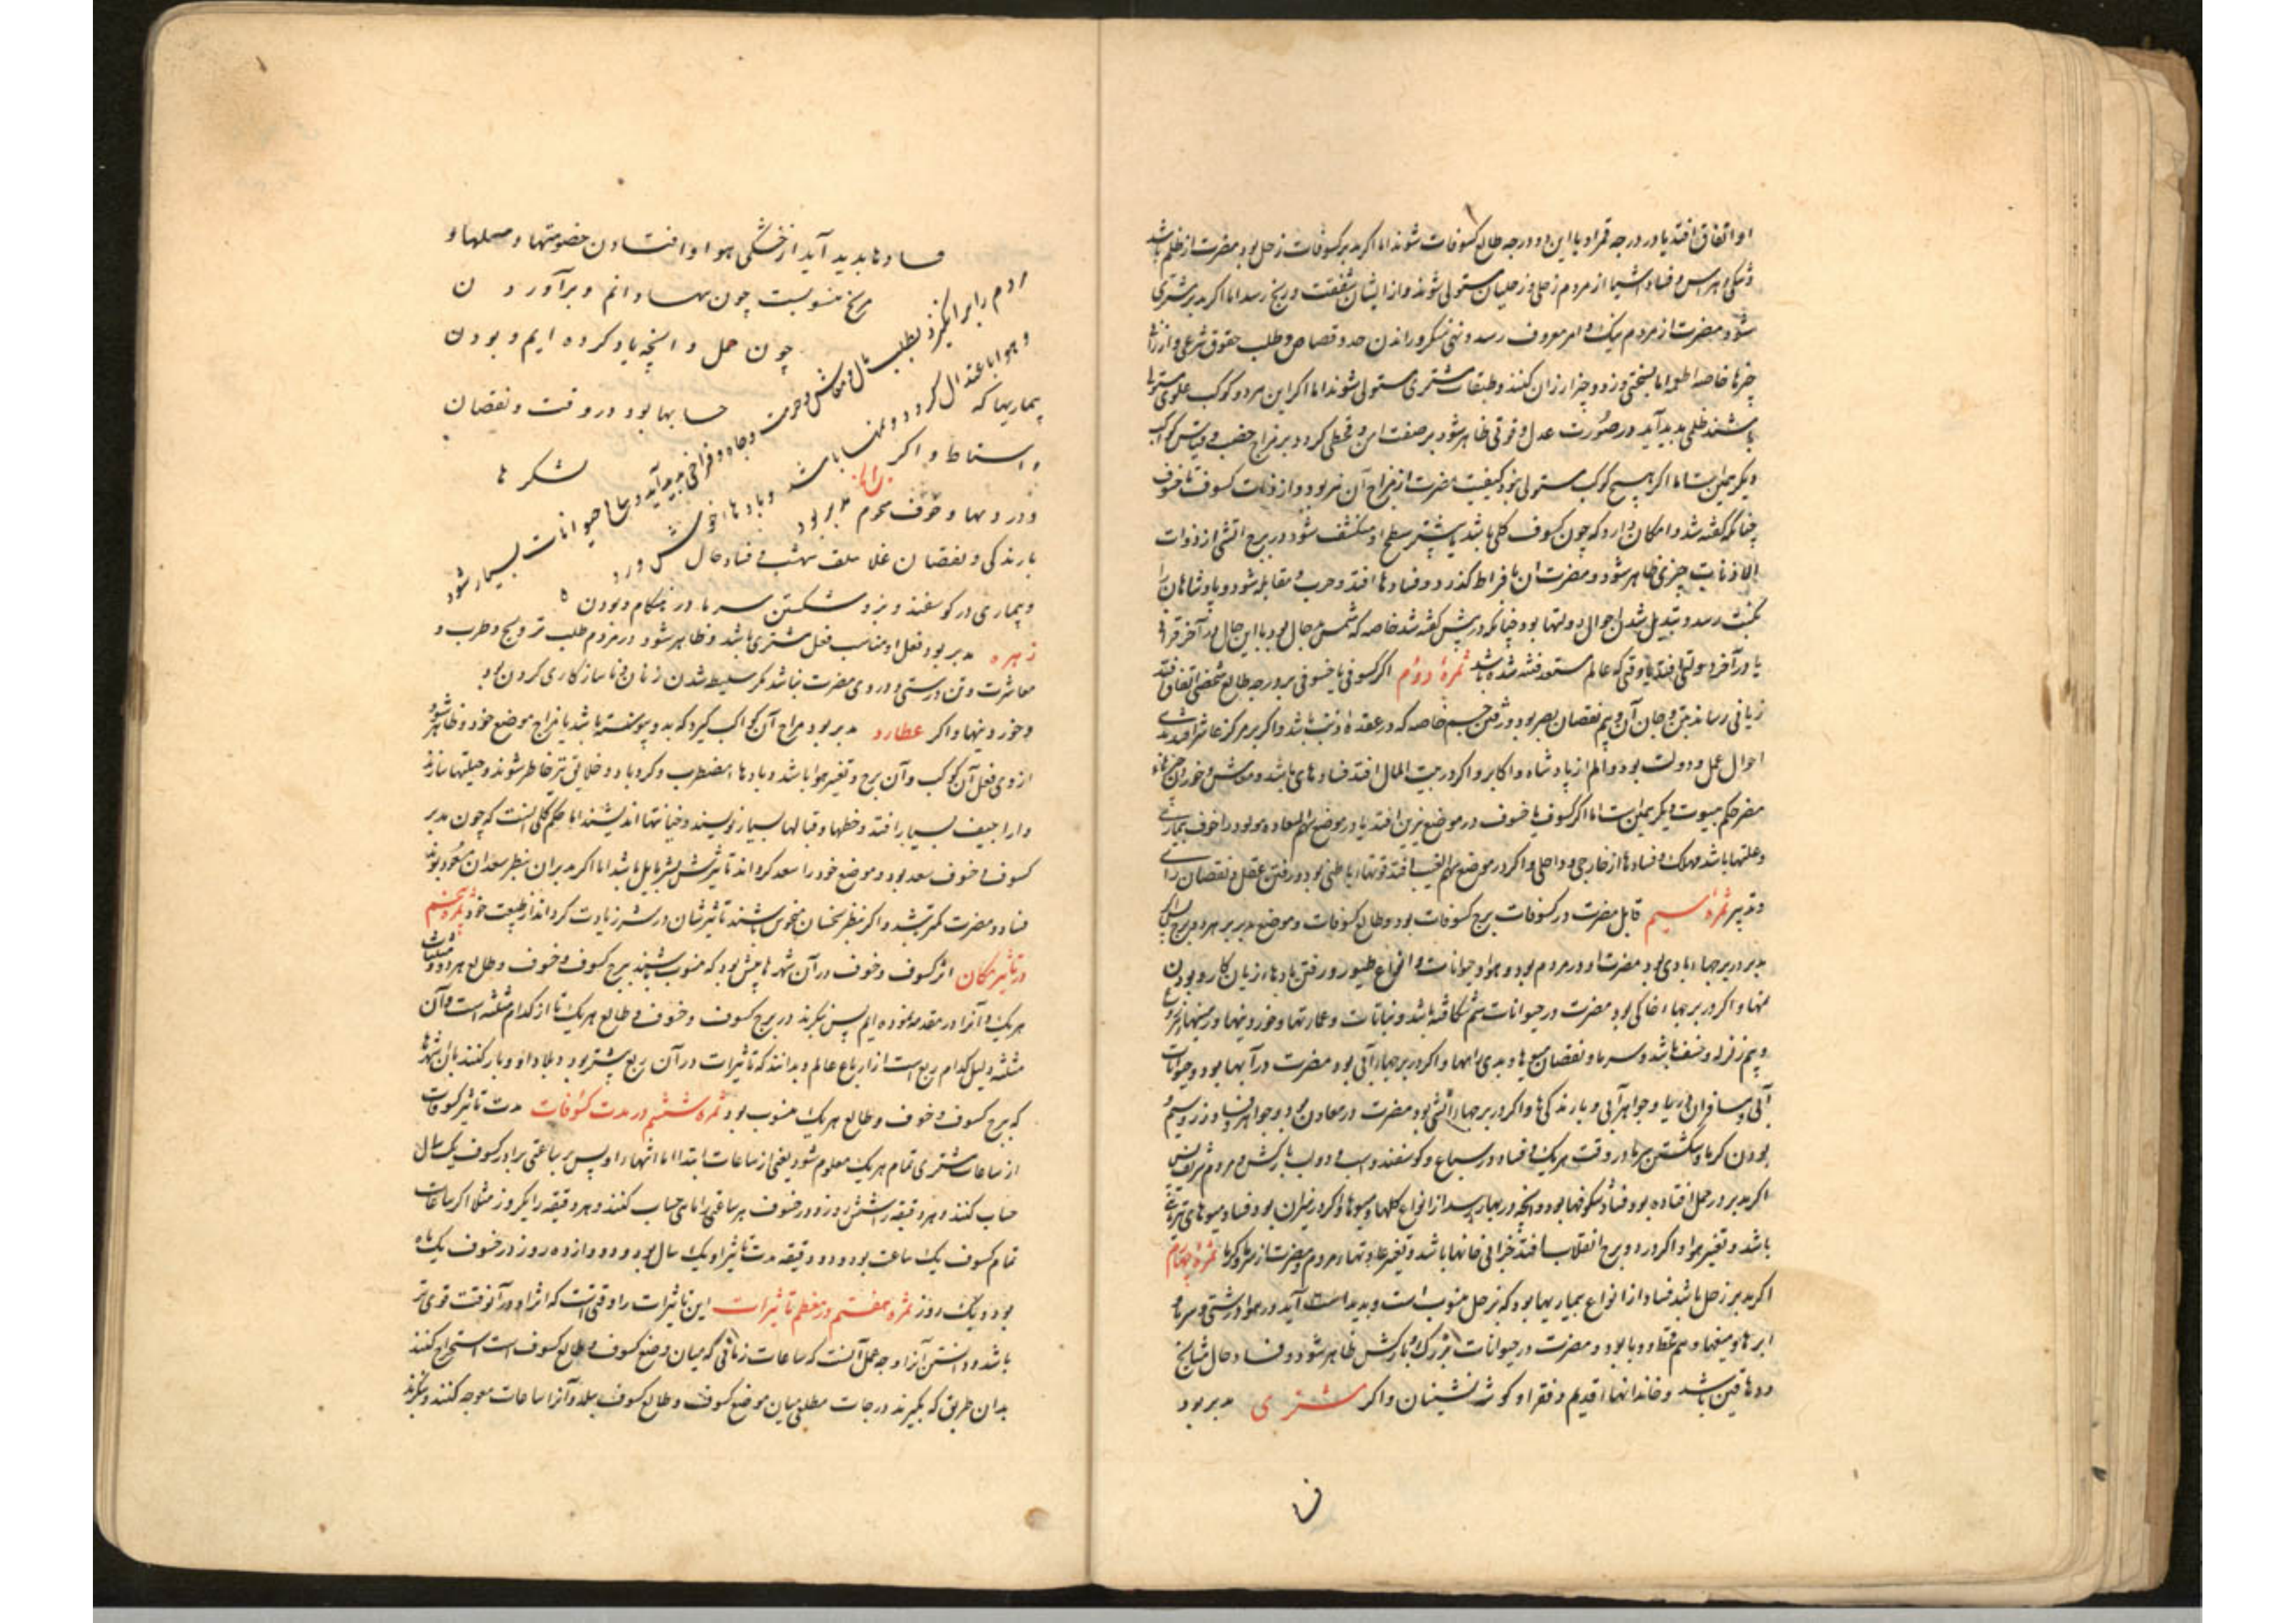 او اتفاق افتد یا در درجه قمر او یا این دو درجه طالع کسوفات شوند اما اگر مدبر کسوفات زحل بود مضرت از ظلم باشد
و فساد اشیا از مردم زحلی و زحلیان مستولی شوند و از ایشان شفقت و رنج رسد اما اگر مدبر مشتری
شود مضرت از مردم نیک و امر معروف رسد و نهی منکر و راندن حد و قصاص و طلب حقوق شرعی و
مشتری مستولی شوند اما اگر این هر دو کوکب علوی مستولی
باشند ظلمی پدید آید در صورت عدل و قوتی ظاهر شود بر صفت امن و قحطی گردد بر مزاج
دیگر همین است اما اگر هیچ کوکب مستولی نبود کیفیت مضرت از مزاج آن برج بود و از ذوات کسوفات خسوف
چنانکه گفته شد و امکان دارد که چون کسوف کلی باشد یا بیشتر سطح او منکسف شود در برج آتشی از ذوات
الاذناب چیزی ظاهر شود و مضرت آن بافراط گذرد و فسادها افتد و حرب و مقابله شود و پادشاهان را
نکبت رسد و تبدیل شدن احوال دولتها بود چنانکه در پیش گفته شد خاصه که شمس در حال بود با این حال در آخر قران
یا در آخر دولتی افتد یا وقتی که عالم مستعد فتنه شده باشد ثمرهٔ دوم اگر کسوفی یا خسوفی بر درجه طالع شخصی اتفاق افتد
زیانی رساند بتن و جان آن و بیم نقصان بصر بود و رفتن چشم خاصه که در عقدهٔ ذنب باشد و اگر بر مرکز عاشر افتد بدی
احوال عمل و دولت بود و الم از پادشاه و اکابر و اگر در بیت المال افتد فسادهای باشد و معاش و خوردن چیزهاء
مضر حکم بیوت دیگر همین است اما اگر کسوف یا خسوف در موضع نیرین افتد یا در موضع سهم السعاده مولود را خوف بیماری
و علتها باشد مهلک و فسادها از خارجی و داخلی و اگر در موضع سهم الغیب افتد قوتهاء باطنی بود و رفتن عقل و نقصان رای
و تدبیر ثمرهٔ سیم قابل مضرت در کسوفات برج کسوفات بود و طالع کسوفات و موضع مدبر بر هر دو برج پس اگر
مدبر در برجهاء بادی بود مضرت او در مردم بود و هوا و حیوانات و انواع طیور و رفتن بادهاء زیان کار و بودن
و اگر در برجهاء خاکی بود مضرت در حیوانات سم شکافته باشد و نباتات و عمارتها و خوردنیها و زمینها
و بیم زلزله و خسف باشد و سرما و نقصان میوها و بدی راهها و اگر در برجهاء آبی بود مضرت در آبها بود و حیوانات
آبی و مسافران دریا و جواهر آبی و بارندگی‌ها و اگر در برجهاء آتشی بود مضرت در معادن بود و جواهر و فساد و زر و سیم
بودن گرما و شکستن سرما در وقت هر یک و فساد در سباع و گوسفند و اسب و دواب بارکش و مردم شریف
اگر مدبر در حمل افتاده بود فساد شکوفها بود و آنچه در بهار رسد از انواع گلها و میوها و اگر در میزان بود فساد میوهای
باشد و تغییر هوا و اگر در دو برج انقلاب افتد خرابی خانها باشد و تغییر عادتهاء مردم و مضرت از سرما و گرما ثمرهٔ چهارم
اگر مدبر زحل باشد فساد از انواع بیماریها بود که بزحل منسوب است و پدید آید در هوا درشتی و سرما و
ابرها و میغها و هم قحط و وبا بود و مضرت در حیوانات بزرگ و بارکش ظاهر شود و فساد حال مشایخ
و دهاقین باشد و خاندانهاء قدیم و فقرا و گوشه نشینان و اگر مشتری مدبر بود
فسا
فسادها پدید آید از خشکی هوا و افتادن خصومتها و
مریخ منسوبست چون و برآوردن
چون حمل و آنچه یاد کرده ایم و بودن
حسابها بود در وقت و نقصان
لشکرها
مردم را برانگیزد بطلب مال و معاش و حرمت و جاه و فراخی پدید آید و نتاج حیوانات بسیار شود
و هوا باعتدال گردد و باشد و بادهاء خوش وزد
بیماریها که
و اسقاط و اگر
و دردها و خوف مدبر بود
بارندگی و نقصان غلا و فساد حال
و بیماری در گوسفند و بز و شکستن سرما در هنگام و بودن
زهره مدبر بود فعل او مناسب فعل مشتری باشد و ظاهر شود در مردم طلب تزویج و طرب و
معاشرت و تن درستی و در وی مضرت نباشد مگر سلیط شدن زنان و ناسازکاری کردن
و خوردنیها و اگر عطارد مدبر بود مزاج آن کواکب گیرد که بدو پیوسته باشد یا مزاج موضع خود و ظاهر شود
از وی فعل آن کوکب و آن برج و تغییر هوا باشد و بادهاء مضطرب و گردباد و خلایق تیزخاطر شوند و حیلتها سازند
و اراجیف بسیار افتد و خطها و قبالها بسیار نویسند و خیانتها اندیشند اما حکم کلی آنست که چون مدبر
کسوف و خسوف سعد بود و موضع خود را سعد گرداند تاثیرش بشر مایل باشد اما اگر مدبران بنظر سعدان مسعود بوند
فساد و مضرت کمتر باشد و اگر بنظر نحسان منحوس باشند تاثیرشان در شر زیادت گردد از طبیعت خود ثمرهٔ پنجم
در تاثیر مکان اثر کسوف و خسوف در آن شهرها بیش بود که منسوب باشند ببرج کسوف و خسوف و طالع هر دو و مثلثات
هر یک و آنرا در مقدمه نموده ایم پس بنگرند در برج کسوف و خسوف و طالع هر یک تا از کدام مثلثه است و آن
مثلثه دلیل کدام ربع است از ارباع عالم و بدانند که تاثیرات در آن ربع بیشتر بود و بلاد او و باز کنند بآن شهرها
که برج کسوف و خسوف و طالع هر یک منسوب بود ثمره ششم در مدت کسوفات مدت تاثیر کسوفات
از ساعات مستوی تمام هر یک معلوم شود یعنی از ساعات ابتدا اما انتهاء او پس بر ساعتی برابر کسوف یکسال
حساب کنند و هر دقیقه را شش روز و در خسوف هر ساعتی را ماهی حساب کنند و هر دو دقیقه را یکروز مثلا اگر ساعات
تمام کسوف یک ساعت بود و دو دقیقه مدت تاثیر او یک سال بود و دوازده روز در خسوف یکماه
بود و یک روز ثمره هفتم در معظم تاثیرات این تاثیرات را وقتی است که اثر او در آنوقت قوی تر
باشد و دانستن آنرا وجه عمل آنست که ساعات زمانی که میان وضع کسوف و طالع کسوف است استخراج کنند
بدان طریق که بگیرند درجات مطلعی میان موضع کسوف و طالع کسوف ببلد و آنرا ساعات معوجه کنند و بنگرند